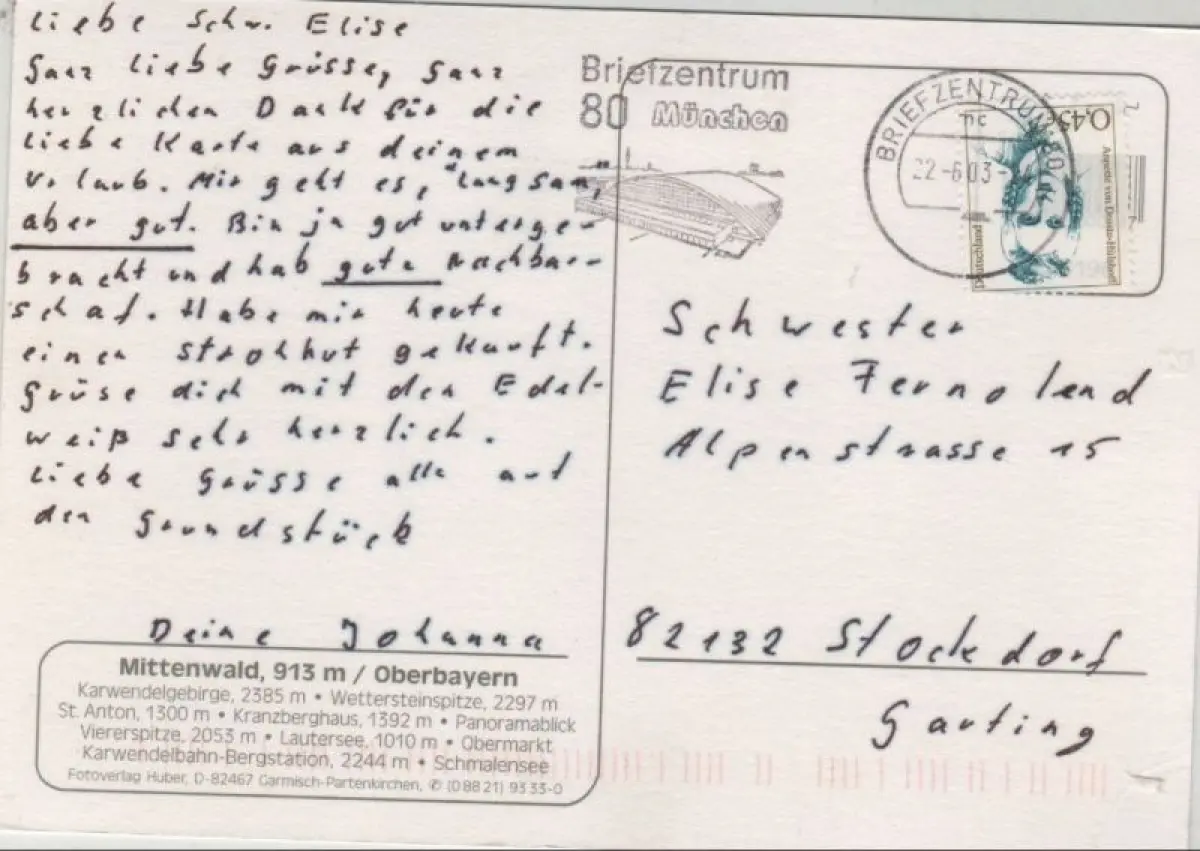 Liebe Schw. Elise
Ganz liebe Grüsse, ganz
herzlichen Dank für die
liebe Karte aus deinem
Urlaub. Mir geht es, "langsam,
aber gut. Bin ja gut unterge-
bracht und hab gute Nachbar-
schaf. Habe mir heute
einen Strohhut gekauft.
Grüse dich mit den Edel-
weiß sehr herzlich.
Liebe Grüsse alle auf
den Grundstück
Deine Johanna
Mittenwald, 913 m / Oberbayern
Karwendelgebirge, 2385 m • Wettersteinspitze, 2297 m
St. Anton, 1300 m • Kranzberghaus, 1392 m • Panoramablick
Viererspitze, 2053 m • Lautersee, 1010 m • Obermarkt
Karwendelbahn-Bergstation, 2244 m • Schmalensee
Fotoverlag Huber, D-82467 Garmisch-Partenkirchen, ✆ (0 88 21) 93 33-0
Briefzentrum
80 München
BRIEFZENTRUM 80
22-6.03-
0,45€
Deutschland
Annette von Droste-Hülshoff
Schwester
Elise Fernolend
Alpenstrasse 15
82132 Stockdorf
Gauting